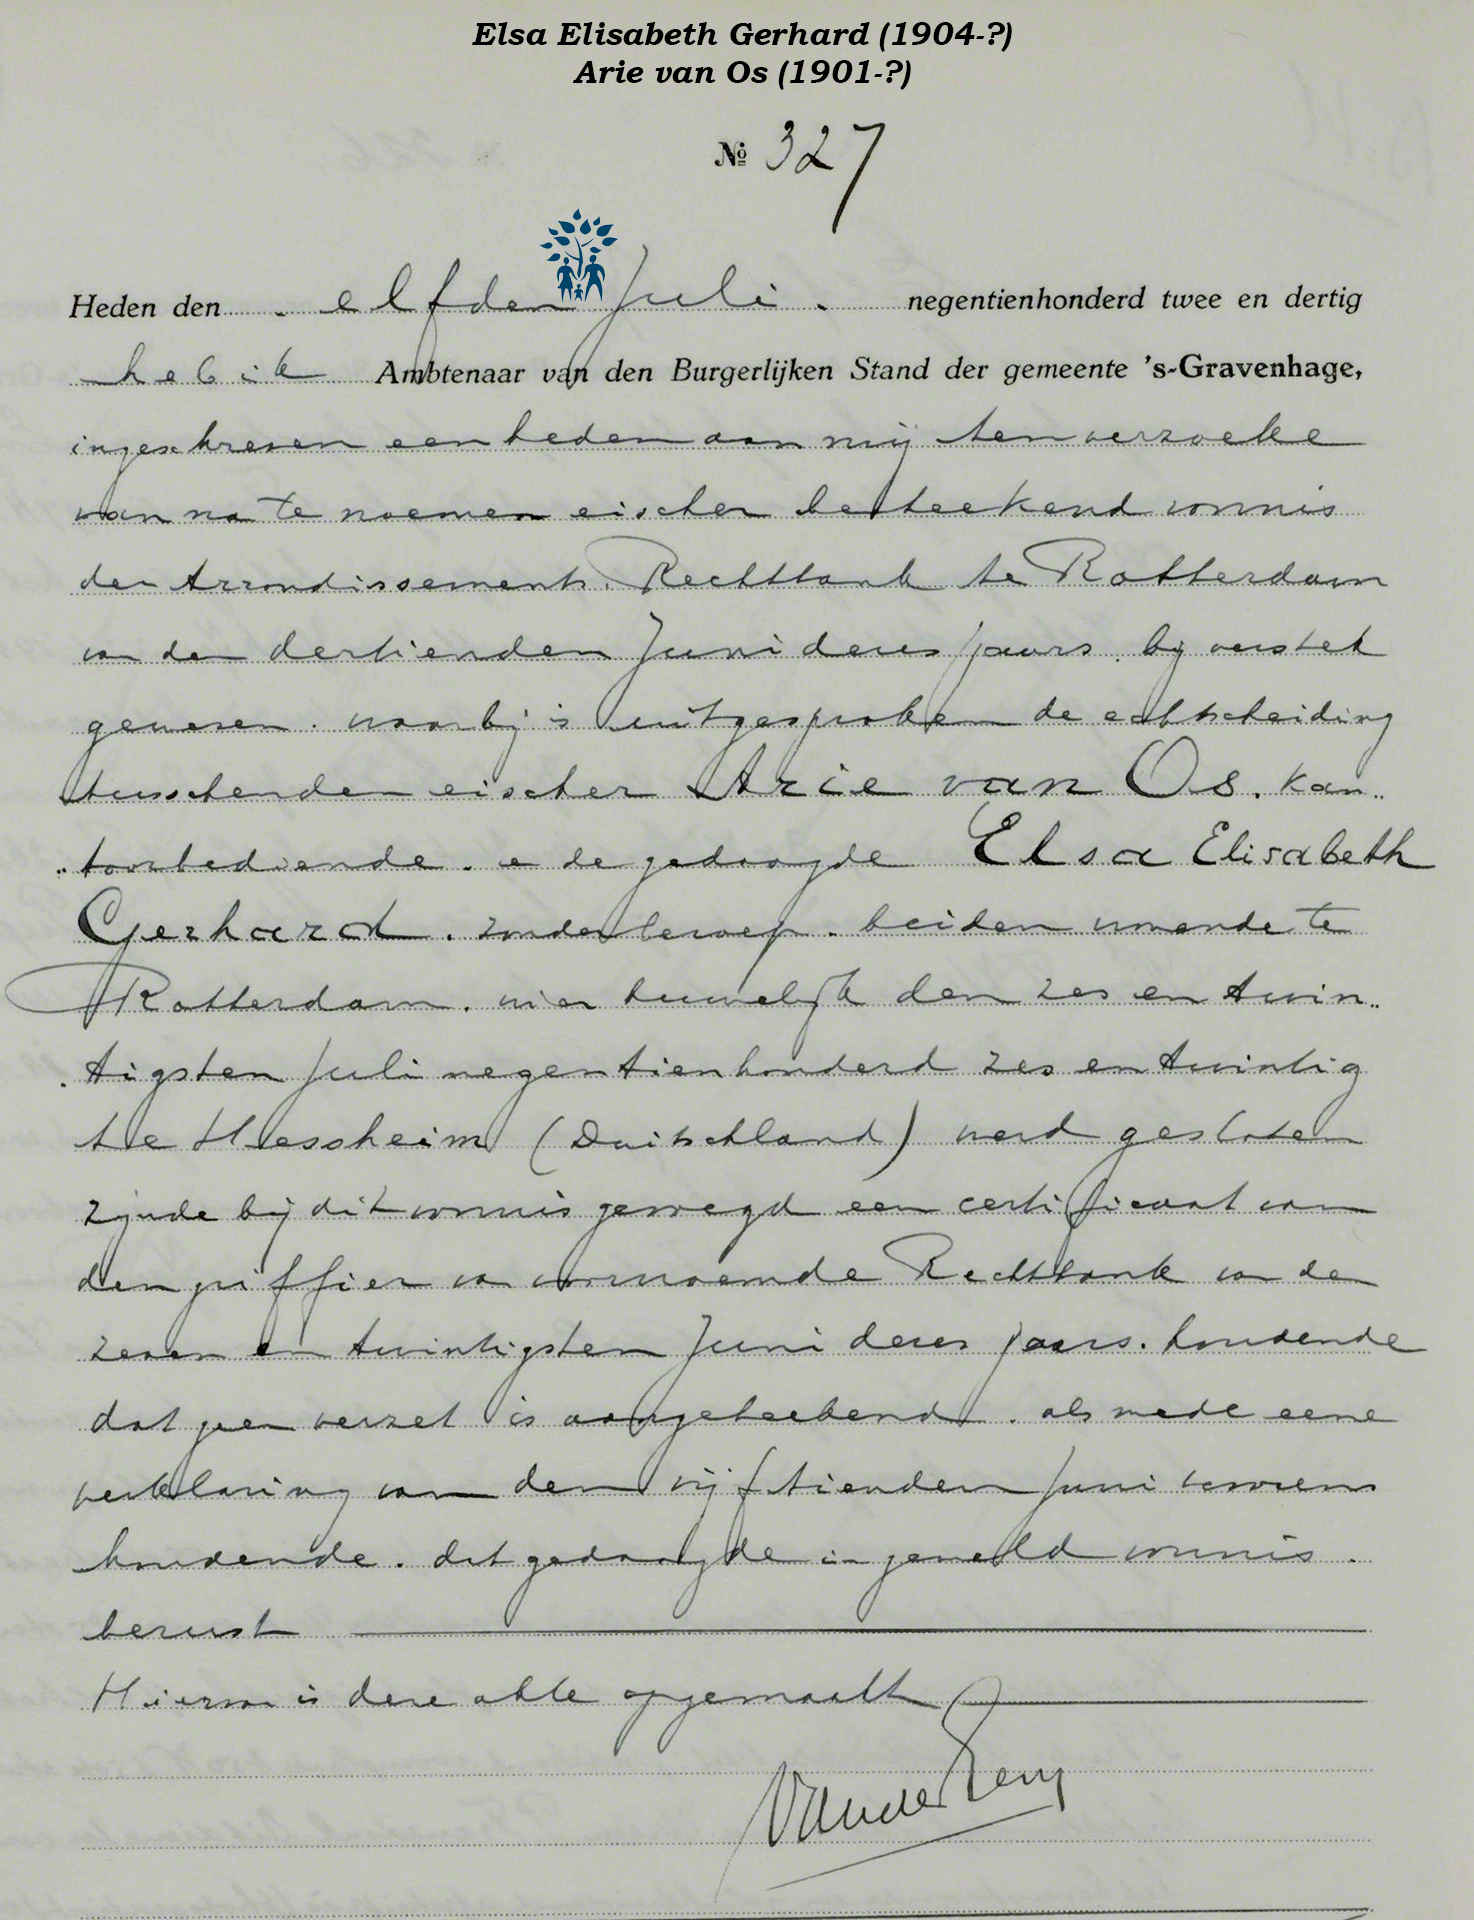 Elsa Elisabeth Gerhard (1904-?)
Arie van Os (1901-?)
№ 327
Heden den elfden Juli negentienhonderd twee en dertig
heb ik Ambtenaar van den Burgerlijken Stand der gemeente 's-Gravenhage,
ingeschreven een heden aan mij ten verzoeke
van na te noemen eischer beteekend vonnis
der Arrondissements Rechtbank te Rotterdam
van den dertienden Juni dezes jaars. bij verstek
gewezen. waarbij is uitgesproken de echtscheiding
tusschen den eischer Arie van Os. kan..
..toorbediende. en de gedaagde Elsa Elisabeth
Gerhard. zonder beroep. beiden wonende te
Rotterdam. wier huwelijk den zes en twin..
tigsten Juli negentienhonderd zes en twintig
te Hessheim (Duitschland) werd gesloten
zijnde bij dit vonnis gevoegd een certificaat van
den griffier van voornoemde Rechtbank van den
zeven en twintigsten Juni dezes jaars. houdende
dat geen verzet is aangeteekend. als mede eene
verklaring van den vijftienden Juni tevoren
houdende. dat gedaagde in gemeld vonnis.
berust
Hiervan is deze akte opgemaakt